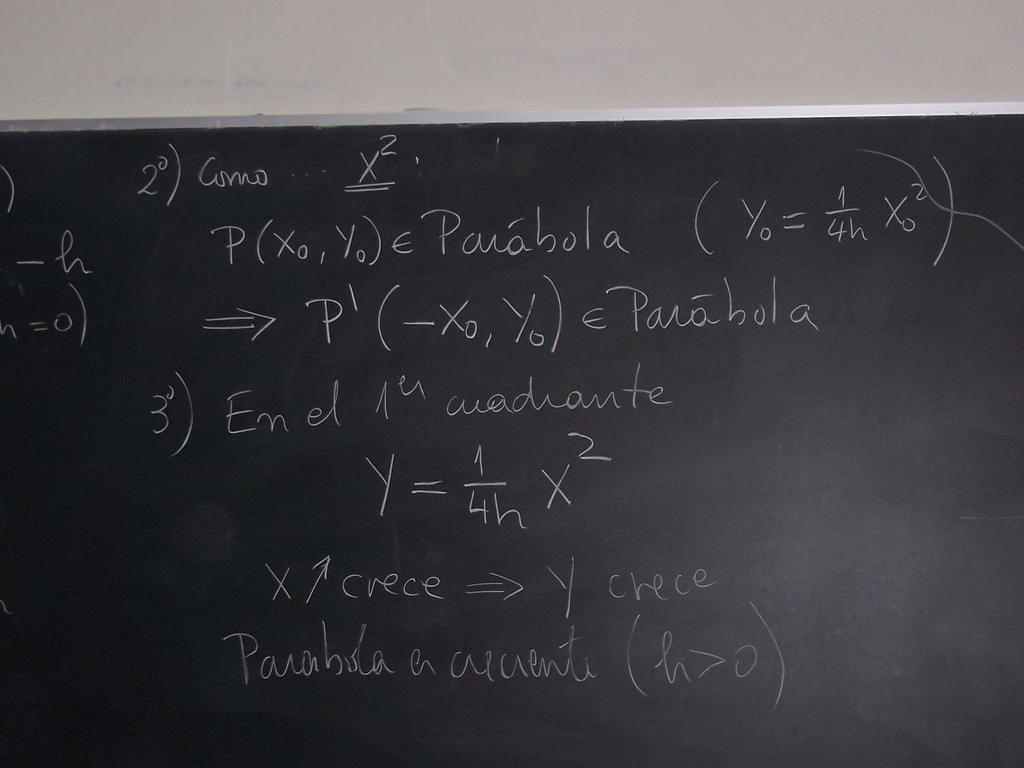 )
- h
h = 0)
2º) Como .... X².
P(X₀, Y₀) ∈ Parábola (Y₀ = 1/4h X₀²)
⇒ P' (-X₀, Y₀) ∈ Parábola
3º) En el 1er cuadrante
Y = 1/4h X²
X ↑ crece ⇒ Y crece
Parábola es creciente (h > 0)